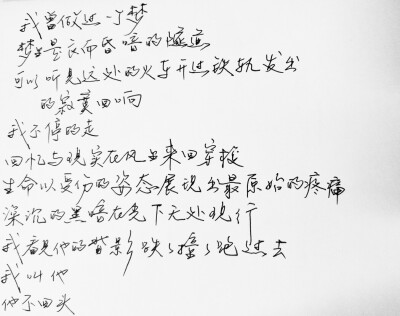 我曾做过一个梦
梦里是长而昏暗的隧道
可以听见远处的火车开过铁轨发出
的寂寞回响
我不停的走
回忆与现实在风里来回穿梭
生命以受伤的姿态展现出最原始的疼痛
深沉的黑暗在光下无处现行
我看见他的背影跌跌撞撞跑过去
我叫他
他不回头